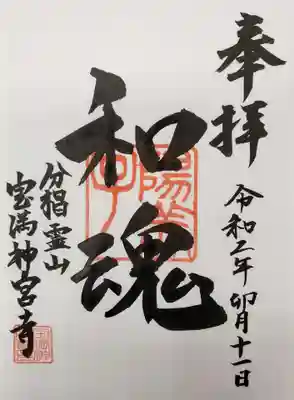 奉拝
令和二年 卯月十一日
和魂
分椙霊山
宝満神宮寺